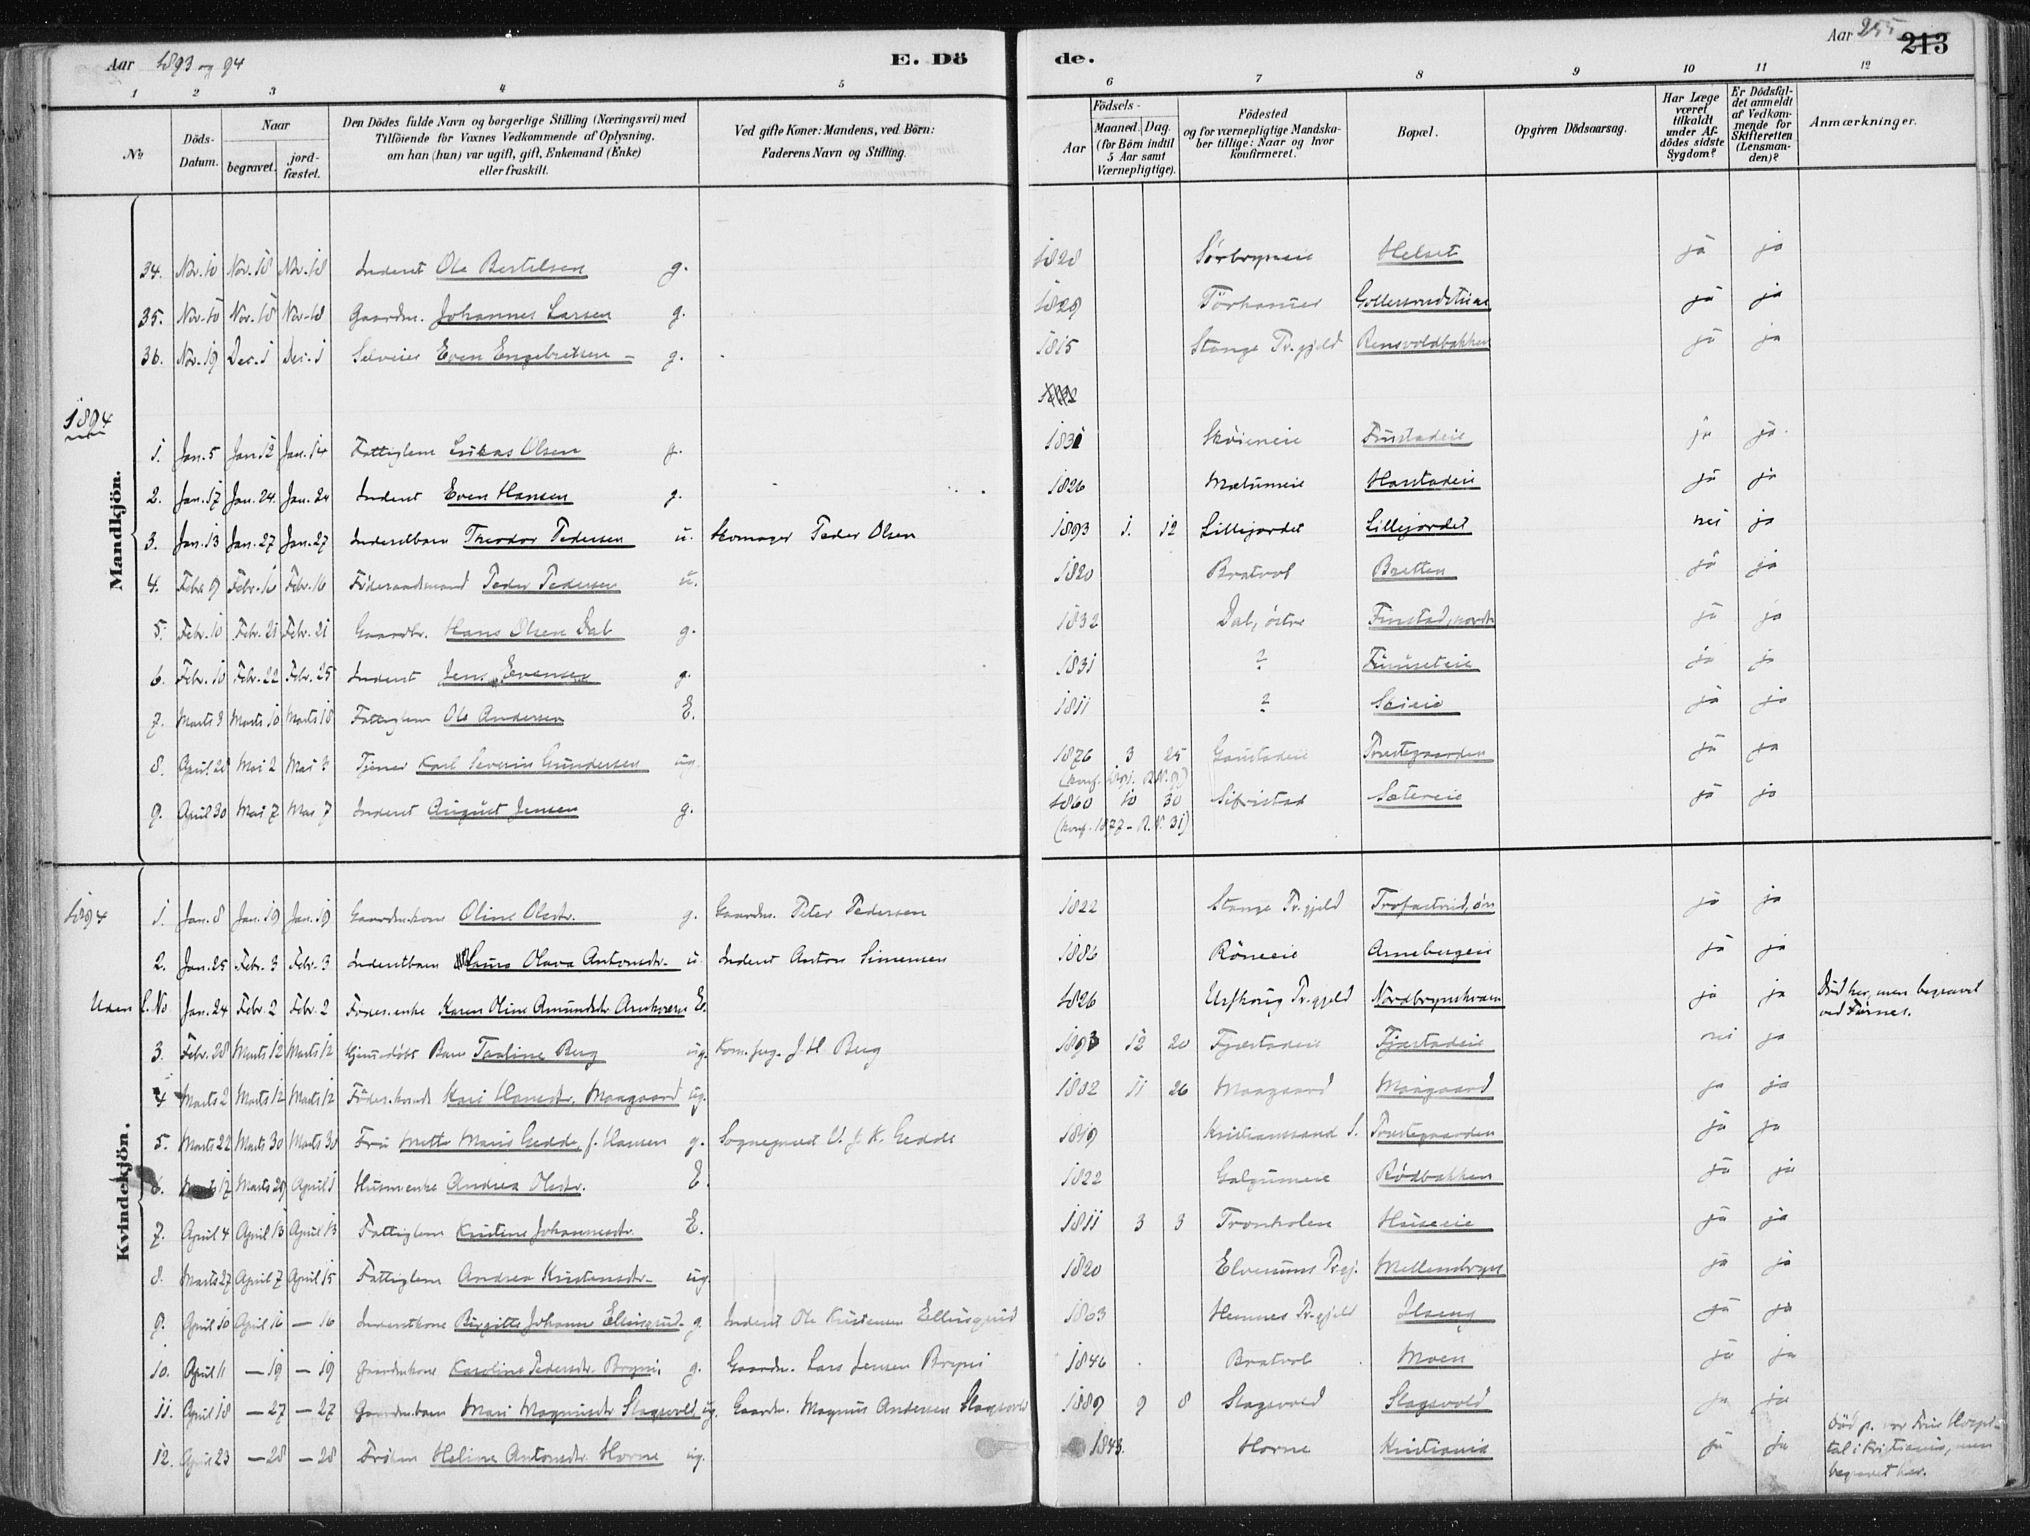 Aar 1893 og 94
E. Dö
de.
Aar 255
213
1 2 3 4 5 6 7 8 9 10 11 12
No
Döds-Datum.
Naar
begravet.
jord-fæstet.
Den Dödes fulde Navn og borgerlige Stilling (Næringsvei) med
Tilföiende for Voxnes Vedkommende af Oplysning,
om han (hun) var ugift, gift, Enkemand (Enke)
eller fraskilt.
Ved gifte Koner: Mandens, ved Börn:
Faderens Navn og Stilling.
Födsels-
Aar
Maaned. Dag.
(for Börn indtil
5 Aar samt
Værnepligtige).
Födested
og for værnepligtige Mandska-
ber tillige: Naar og hvor
konfirmeret.
Bopæl.
Opgiven Dödsaarsag.
Har Læge
været
tilkaldt
under Af-
dödes sidste
Sygdom?
Er Dödsfal-
det anmeldt
af Vedkom-
mende for
Skifteretten
(Lensman-
den)?
Anmærkninger.
Mandkjön.
34. Nov. 10 Nov. 18 Nov. 18 Inderst Ole Bertelsen g. 1828 Sørbryneie Helset ja ja
35. Nov. 10 Nov. 18 Nov. 18 Gaardm. Johannes Larsen g. 1829 ja ja
36. Nov. 19 Dec. 1 Dec. 1 Selveier Even Engebretsen g. 1815 Stange Pr.gjeld Rensvoldbakken ja ja
1894
1. Jan. 5 Jan. 12 Jan. 14 Fattiglem Lukas Olsen g. 1831 Skøieneie Finstadeie ja ja
2. Jan. 17 Jan. 24. Jan. 24 Inderst Even Hansen g. 1826 Mælumeie Harstadeie ja ja
3. Jan. 13 Jan. 27 Jan. 27 Inderstbarn Theodor Pedersen u. Skomager Peder Olsen 1893 1. 12 Lillejordet Lillejordet nei ja
4. Febr. 9 Febr. 16 Febr. 16 Föderaadsmand Peder Pedersen u. 1820 Bratvol Bretten ja ja
5. Febr. 10 Febr. 21 Febr. 21 Gaardbr. Hans Olsen Dal g. 1832 Dal, östre Finstad, nordr ja ja
6. Febr. 10 Febr. 22 Febr. 25 Inderst Jens Evensen g. 1831 ? ja ja
7. Marts 9 Marts 10 Marts 18 Fattiglem Ole Andersen E. 1811 ? ja ja
8. April 28 Mai 2 Mai 3 Tjener Karl Severin Gundersen ug. 1876 3 25 Gaustadeie Prestegaarden ja ja
9. April 30 Mai 7 Mai 7 Inderst August Jensen g. 1860 10 30 Sifristad Sætereie ja ja
(konf. 1877 - R. N. 31)
Kvindekjön.
1894 1. Jan. 8 Jan. 19 Jan. 19 Gaardm.kone Oline Olsdr. g. Gaardm. Peter Pedersen 1822 Stange Pr.gjeld ja ja
2. Jan. 25 Febr. 3 Febr. 3 Inderstbarn Laura Olava Antonsdr. u. Inderst Anton Simensen 1886 Röneeie Arnebergeie ja ja
Uden L. No Jan. 24 Febr. 2 Febr. 2 Födes.enke Karen Oline Amundsdr. E. 1826 Urskoug Pr.gjeld Nordbrynskvern ja ja Död her, men begravet
ved Furnes.
3. Febr. 28 Marts 12 Marts 12 Hjemmedøbt Barn Pauline Berg ug. J. H. Berg 1893 12 20 Fjæstadeie Fjæstadeie nei ja
4 Marts 2 Marts 12 Marts 12 Kari Hansdr. Maagaard ug. 1812 11 26 Maagaard Maagaard ja ja
5. Marts 22 Marts 30 Marts 30 Fru Mette Marie Gedde, f. Hansen g. Sogneprest U. J. K. Gedde 1819 Kristianssand S. Prestegaarden ja ja
6. Marts 17 Marts 29 April 1 Husm.enke Andrea Olsdr. E. 1822 Galgumeie Rödbakken ja ja
7. April 4 April 13 April 13 Fattiglem Kristine Johannesdr. E. 1811 3 3 Tronholen Huseeie ja ja
8. Marts 27 April 7 April 15 Fattiglem Andrea Kristensdr. ug. 1820 Elverums Pr.gj. Mellembryn ja ja
9. April 10 April 16 — 16 Inderstkone Birgitte Johanne Ellingsrud g. Inderst Ole Kristensen Ellingsrud 1863 Hemnes Pr.gjeld Ilseng ja ja
10. April 11 — 19 — 19 Gaardm.kone Karoline Pedersdr. Bryni g. Gaardm. Lars Jensen Bryni 1846 Bratvol Moen ja ja
11. April 18 — 27 — 27 Gaardm.barn Mari Magnusdr. Slagsvold ug. Gaardm. Magnus Andersen Slagsvold 1889 9 8 Slagsvold Slagsvold ja ja
12. April 23 — 28 — 28 Fröken Heline Antonsdr. Horne ug. 1843. Horne Kristiania ja ja Död p. vor Frue Hospi-
tal i Kristiania, men
begravet her.